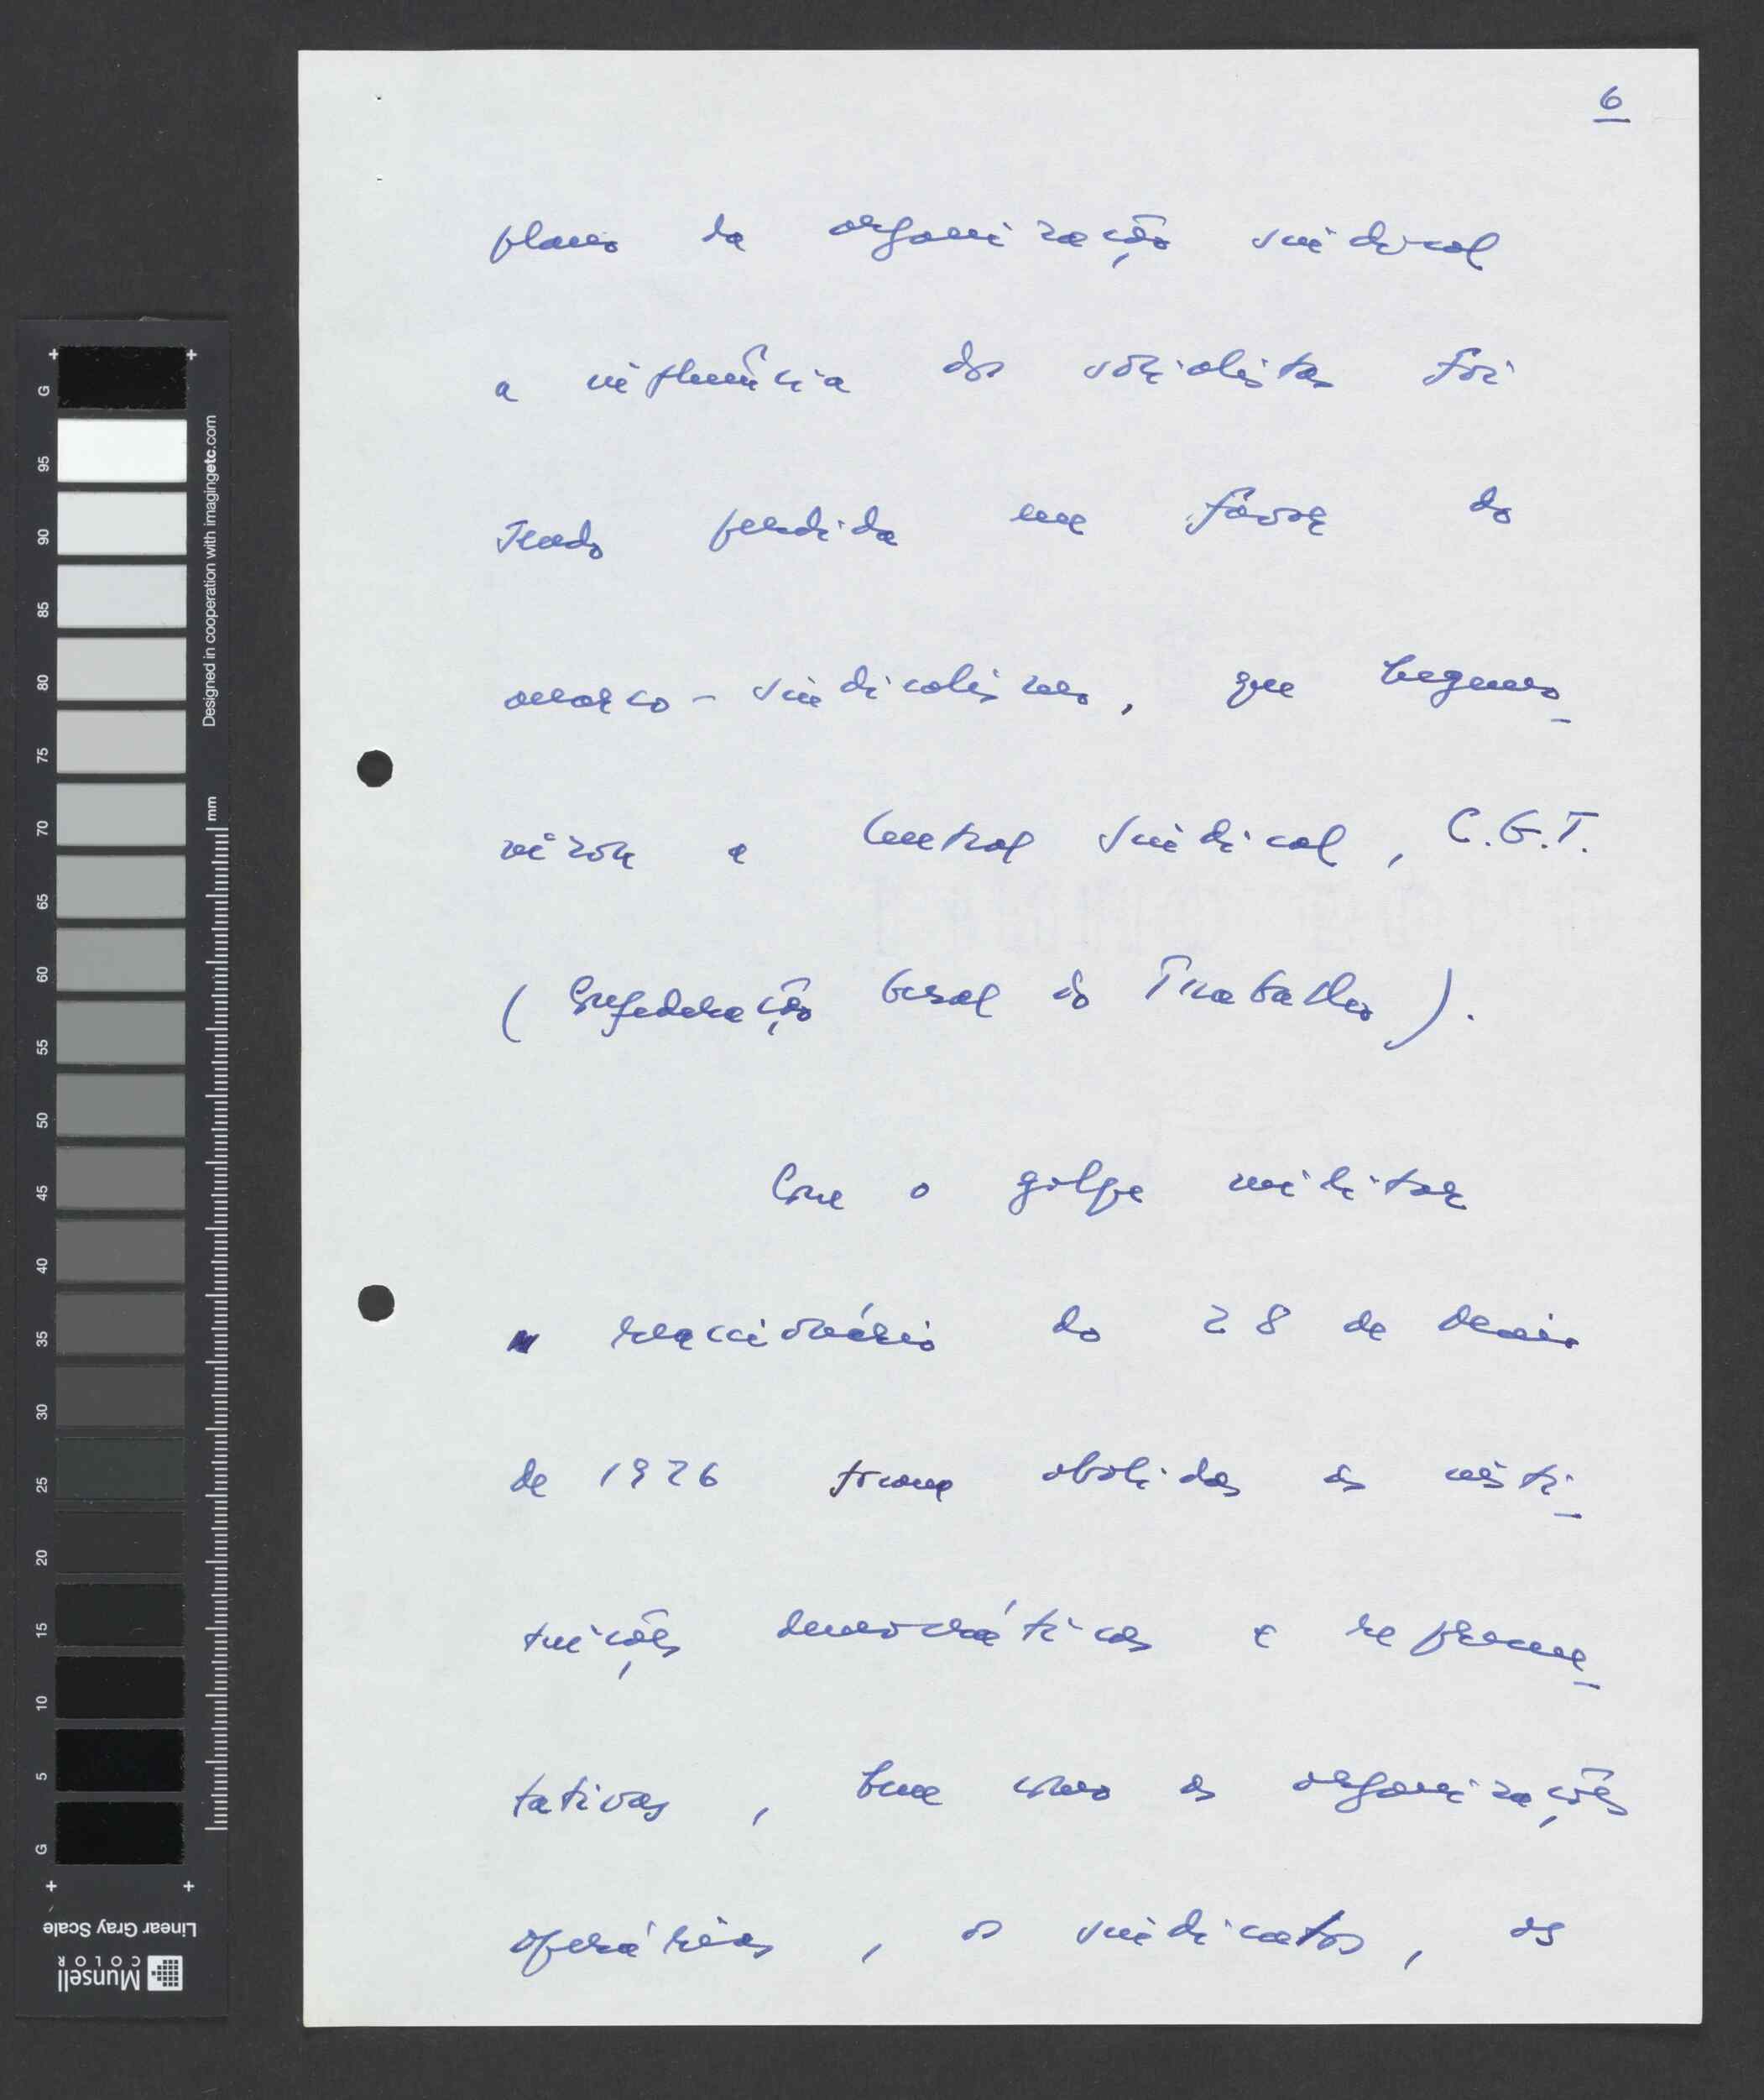 6
plano da organização sindical
a influência dos socialistas foi
sendo perdida em favor do
anarco-sindicalismo, que hegemo-
nizou a Central Sindical, C.G.T.
(Confederação Geral do Trabalho).
Com o golpe militar
reaccionário do 28 de Maio
de 1926 foram abolidas as insti-
tuições democráticas e represen-
tativas, bem como as organizações
operárias, os sindicatos, os
G 95 90 85 80 75 70 65 60 55 50 45 40 35 30 25 20 15 10 5 G
Designed in cooperation with imagingetc.com
mm
Linear Gray Scale
Munsell
COLOR